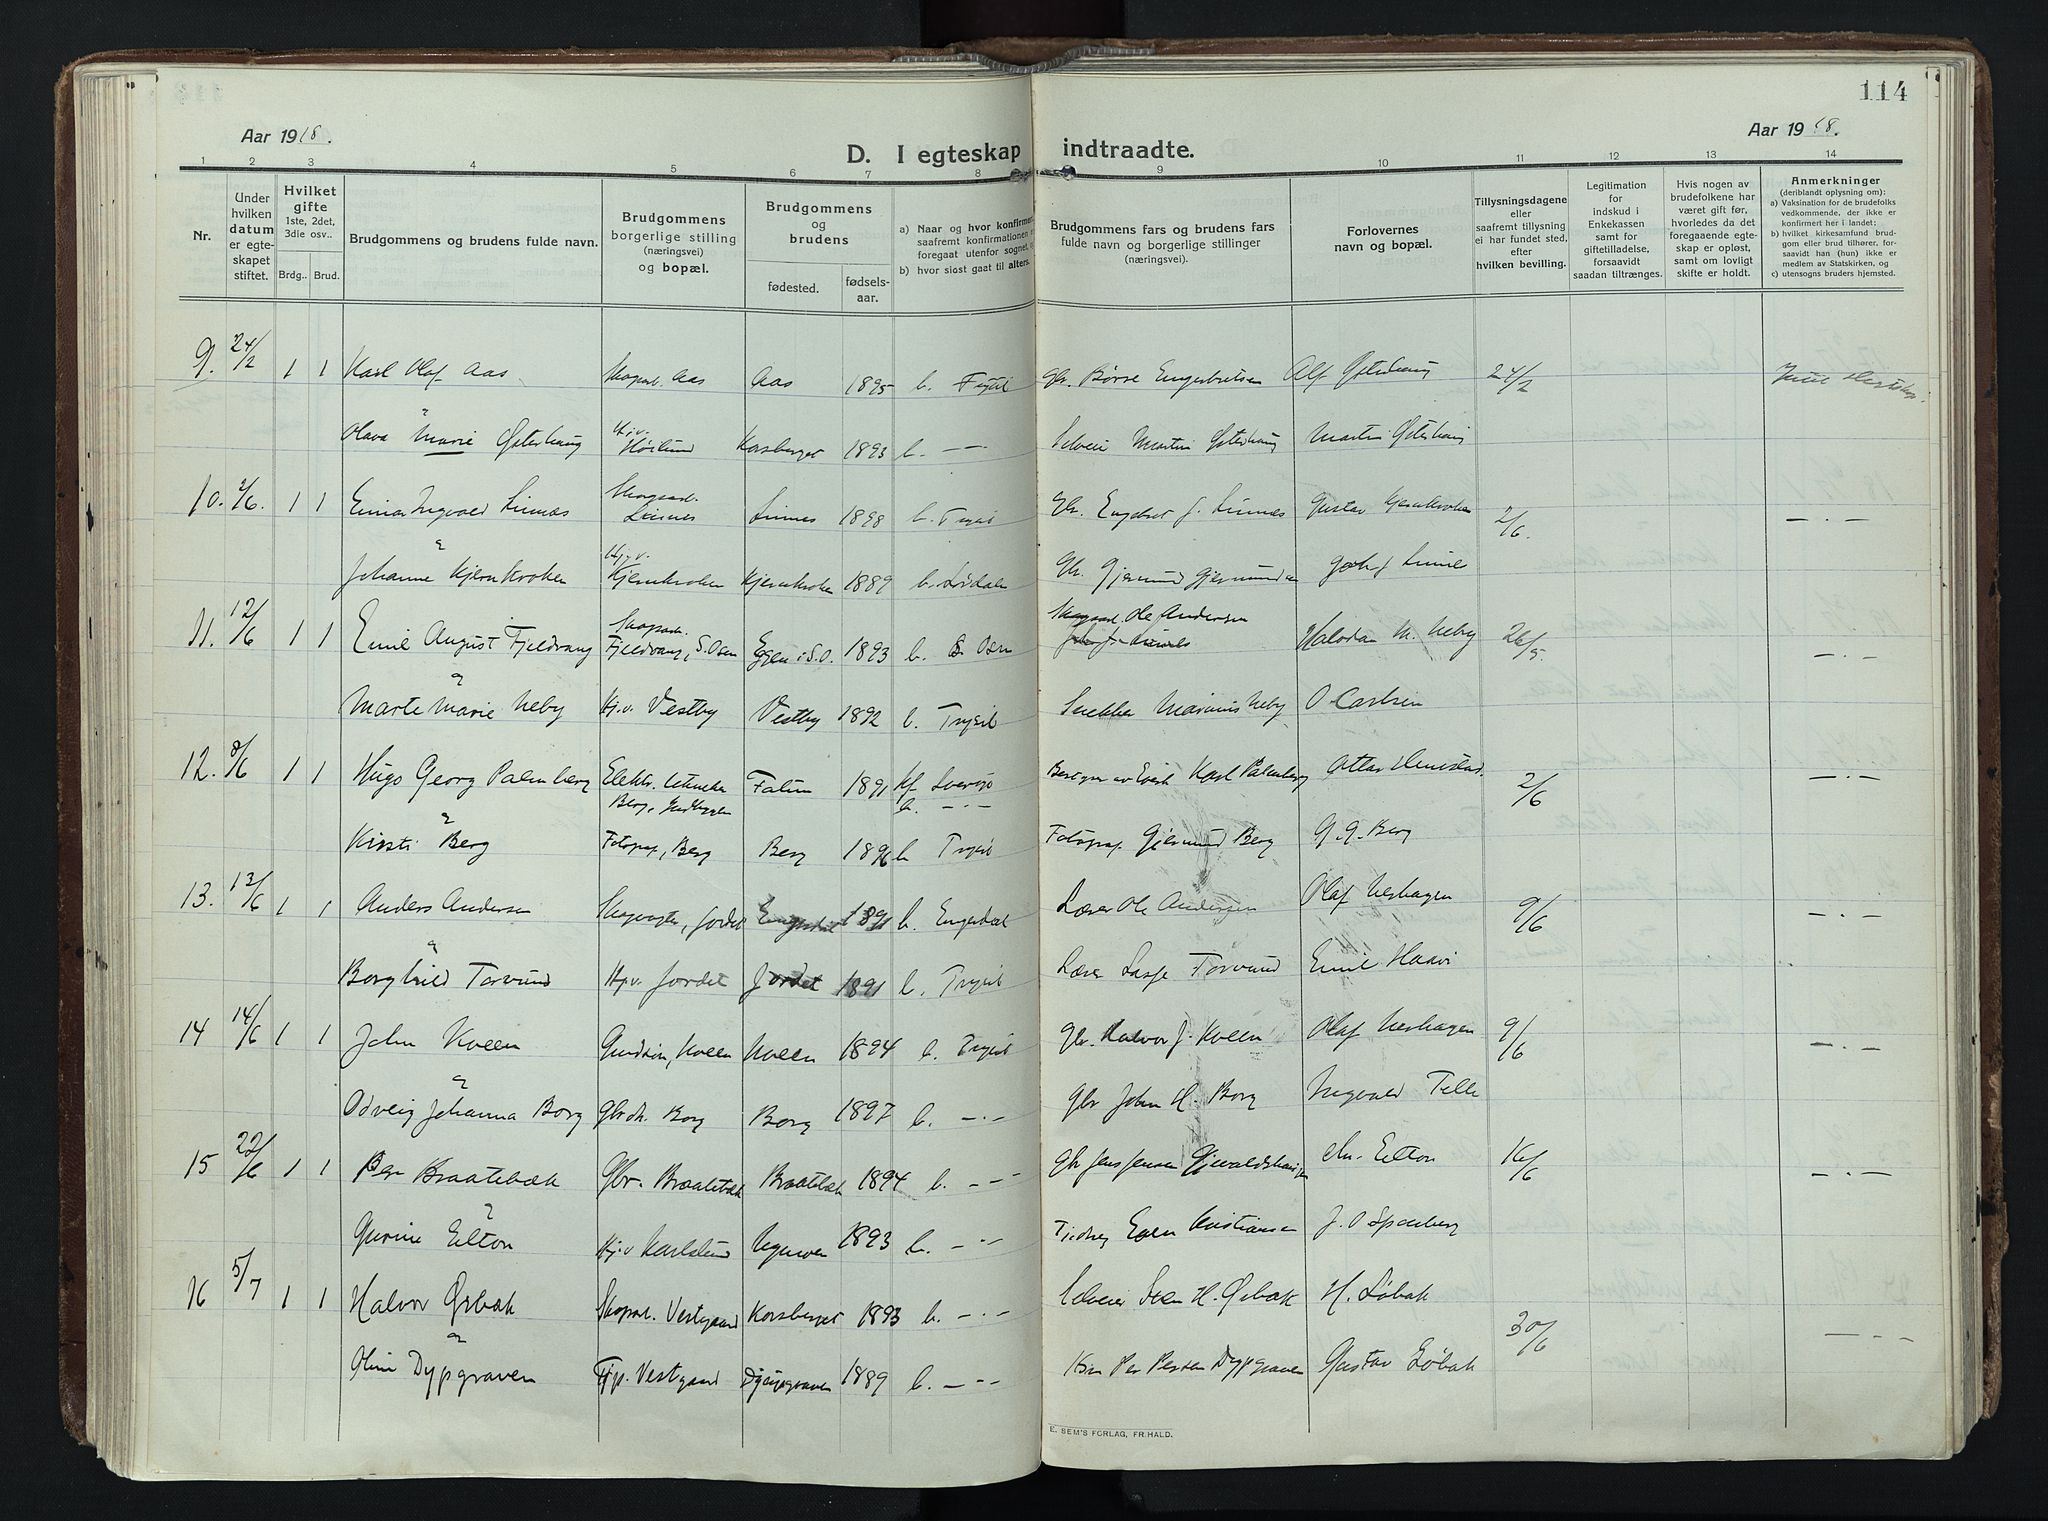 114
Aar 1918.
Aar 1918.
D. I egteskap indtraadte.
1 2 3 4 5 6 7 8 9 10 11 12 13 14
Nr.
Under hvilken datum er egteskapet stiftet.
Hvilket gifte
1ste, 2det, 3die osv..
Brdg.. Brud.
Brudgommens og brudens fulde navn.
Brudgommens borgerlige stilling (næringsvei) og bopæl.
Brudgommens og brudens
fødested.
fødselsaar.
a) Naar og hvor konfirmer
saafremt konfirmationen
foregaat utenfor sognet,
b) hvor sidst gaat til alters.
Brudgommens fars og brudens fars
fulde navn og borgerlige stillinger
(næringsvei).
Forlovernes
navn og bopæl.
Tillysningsdagene
eller
saafremt tillysning
ei har fundet sted,
efter
hvilken bevilling.
Legitimation
for
indskud i
Enkekassen
samt for
giftetilladelse,
forsaavidt
saadan tiltrænges.
Hvis nogen av
brudefolkene har
været gift før,
hvorledes da det
foregaaende egteskap er opløst,
samt om lovligt
skifte er holdt.
Anmerkninger
(deriblandt oplysning om):
a) Vaksination for brudefolks
vedkommende, der ikke er
konfirmert her i landet;
b) hvilket kirkesamfund brudgom eller brud tilhører, forsaavidt han (hun) ikke er
medlem av Statskirken, og
c) utensogns bruders hjemsted.
9. 24/2 1 1 Karl Olaf Aas Aas Aas 1895 b. Trysil Gbr. Børre Engebretsen Alf Østerhaug 24/2
Olava Marie Østerhaug Korsberget 1893 b. — Selveier Martin Østerhaug Martin Østerhaug
10. 2/6. 1 1 Einar Ingvald Linnes Linnes Linnes 1898 b. Trysil Gbr. Engebret J. Linnes Gustav Kjernkroken 2/6. — . —
Johanne Kjernkroken Hj.v. Kjernkroken Kjernkroken 1889 b. Gbr. Gjermund Gjermundsen
11. 12/6 1 1 Emil August Fjeldvang Fjeldvang, S. Osen Eggen i S.O. 1893 b. S. Osen Ole Andersen Halvdan M. Neby 26/5. — . —
Marte Marie Neby Hj.v. Vestby Vestby 1892 b. Trysil Snekker Marinius Neby O Carlsen
12. 8/6 1 1 Hugo Georg Palmberg Elektr. Falun 1891 kf b. — . — Karl Palmberg 2/6 — . —
Kirsti Berg Fotograf, Berg Berg 1896 b Trysil Fotograf Gjermund Berg G. G. Berg
13. 13/6 1 1 Anders Andersen Jordet Engerdal 1891 b. Engerdal Lærer Ole Andersen Olaf Neshagen 9/6 — . —
Borghild Torvund Hj.v. Jordet Jordet 1891 b. Trysil Lærer Lasse Torvund Emil Haavi
14 14/6 1 1 John Kveen Kveen Kveen 1894 b. Trysil Gbr. Halvor J. Kveen Olaf Neshagen 9/6 — . —
Odveig Johanna Borg Gbr.dt. Borg Borg 1897 b. — . — Gbr John H. Borg Ingvald Telle
15 22/6 1 1 Per Braatebæk Gbr. Braatebæk Braatebæk 1894 b. — . — Gbr Jens Jensen Elton 16/6 — . —
Gurine Elton Hj.v Karlslund 1893 b. — . — Even Kristiansen J. O Sponberg
16 5/7 1 1 Halvor Ørbæk Skogsarb. Vestgaard Korsberget 1893 b. — . — Selveier Sven H. Ørbæk H. Løbak 30/6 — . —
Oline Dypgraven Vestgaard Dypgraven 1889 b. — . — Per Persen Dypgraven Gustav Løbak
E. SEM'S FORLAG, FR.HALD.